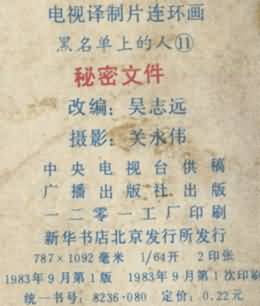 电视译制片连环画
黑名单上的人⑪
秘密文件
改编：吴志远
摄影：关永伟
中央电视台供稿
广播出版社出版
一二零一工厂印刷
新华书店北京发行所发行
787×1092毫米 1/64开 2印张
1983年9月第1版 1983年9月第1次印刷
统一书号：8236·080 定价：0.22元